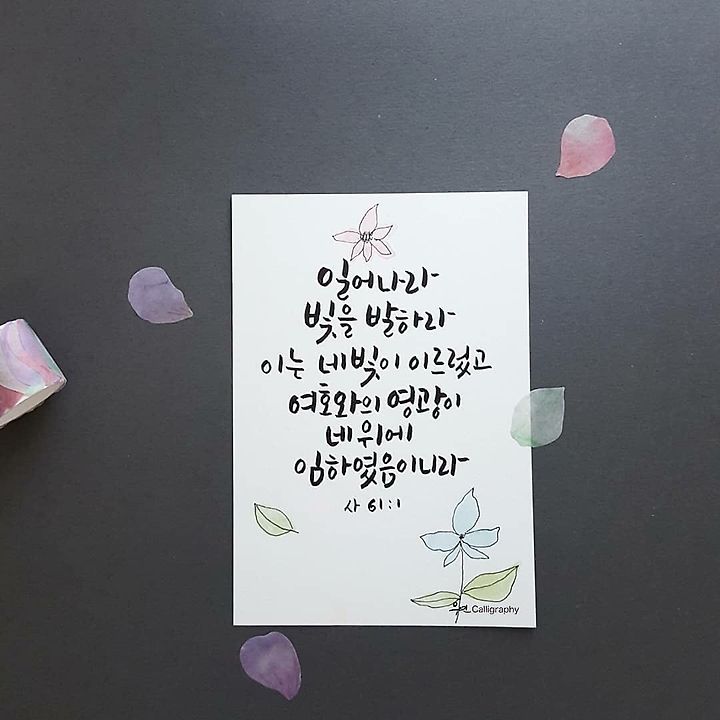 일어나라
빛을 발하라
이는 네빛이 이르렀고
여호와의 영광이
네 위에
임하였음이니라
사 61:1
Calligraphy